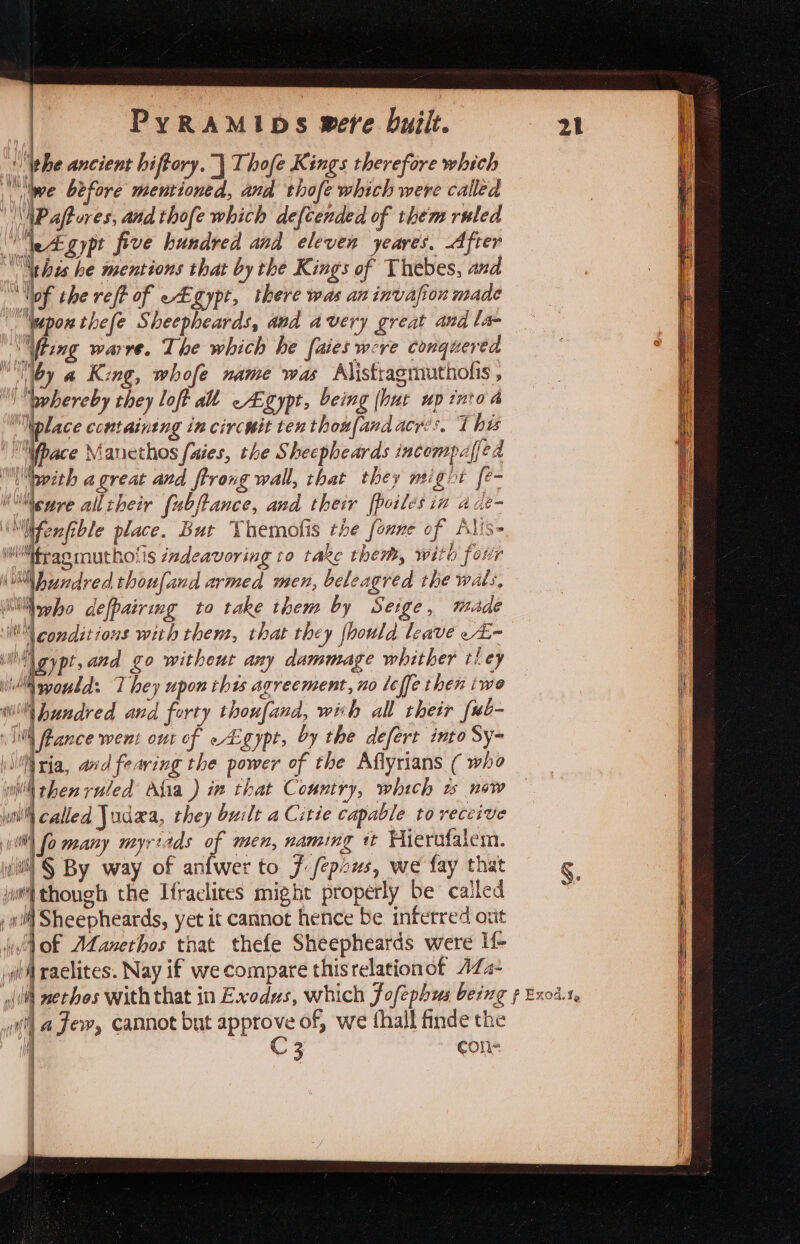 PYRAMIDS were built. 21
the ancient history.] Those Kings therefore which
we before mentioned, and those which were called
Pastures, and those which descended of them ruled
Ægypt five hundred and eleven yeares. After
this he mentions that by the Kings of Thebes, and
of the rest of Ægypt, there was an invasion made
upon these Sheepheards, and a very great and la-
sting warre. The which he saies were conquered
by a King, whose name was Alisfragmuthosis,
whereby they lost all Ægypt, being shut up into a
place containing in circuit ten thousand acres. This
space Manethos saies, the Sheepheards incompassed
with a great and strong wall, that they might se-
cure all their substance, and their spoiles in a de-
fensible place. But Themosis the sonne of Alis-
fragmuthosis indeavoring to take them, with four
hundred thousand armed men, beleagred the wals,
who despairing to take them by Seige, made
conditions with them, that they should leave Æ-
gypt, and go without any dammage whither they
would: They upon this agreement, no lesse then two
hundred and forty thousand, with all their sub-
stance went out of Ægypt, by the desert into Sy-
ria, and fearing the power of the Assyrians (who
then ruled Asia) in that Country, which is now
called Judæa, they built a Citie capable to receive
so many myriads of men, naming it Hierusalem.
§ By way of answer to Josephus, we say that §.
though the Israelites might properly be called
Sheepheards, yet it cannot hence be inferred out
of Manethos that these Sheepheards were Is-
raelites. Nay if we compare this relation of Ma-
nethos with that in Exodus, which Josephus being § Exod.1.
a Jew, cannot but approve of, we shall finde the
C 3 con-